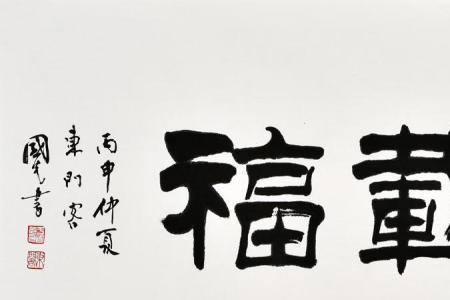 載福
丙申仲夏
東門客
國書